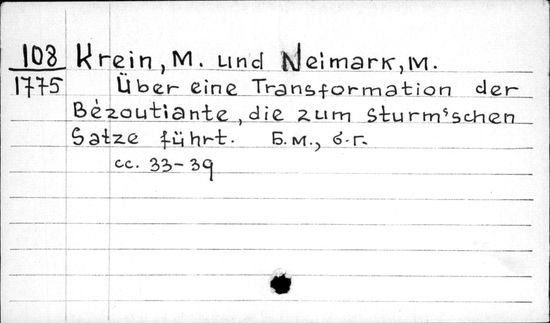 108 Krein, M. und Neimark, M.
1775 Über eine Transformation der
Bézoutiante, die zum Sturm'schen
Satze führt. Б.м., б.г.
сс. 33-39